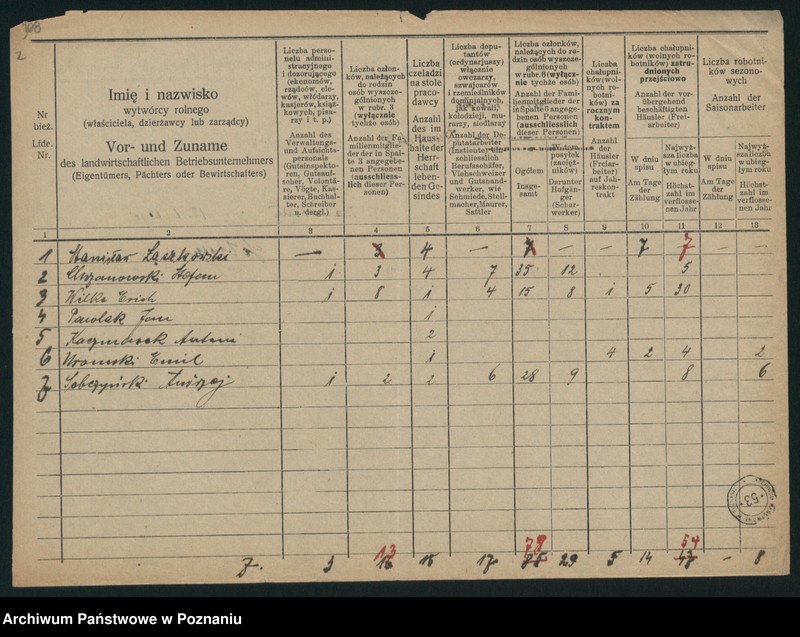 308
2
Nr bież.
Lfde. Nr.
Imię i nazwisko
wytwórcy rolnego
(właściciela, dzierżawcy lub zarządcy)
Vor- und Zuname
des landwirtschaftlichen Betriebsunternehmers
(Eigentümers, Pächters oder Bewirtschafters)
Liczba perso-
nelu admini-
stracyjnego
i dozorującego
(ekonomów,
rządców, ele-
wów, włódarzy,
kasjerów, książ-
kowych, pisa-
rzy i t. p.)
Anzahl des
Verwaltungs-
und Aufsichts-
personals
(Gutsinspekto-
ren, Gutsauf-
seher, Volontä-
re, Vögte, Kas-
sierer, Buchhal-
ter, Schreiber
u. dergl.)
Liczba człon-
ków, należących
do rodzin
osób wyszcze-
gólnionych
w rubr. 3
(wyłącznie
tychże osób)
Anzahl der Fa-
milienmitglie-
der der in Spal-
te 3 angege-
benen Personen
(ausschliess-
lich dieser Per-
sonen)
Liczba
czeladzi
na stole
praco-
dawcy
Anzahl
des im
Haus-
halte der
Herr-
schaft
leben-
den Ge-
sindes
Liczba depu-
tantów
(ordynarjuszy)
włącznie
owczarzy,
szwajcarów
i rzemieślników
dominjalnych,
jak kowali,
kołodzieji, mu-
rarzy, siodlarzy
Anzahl der De-
putatarbeiter
(Instleute) ein-
schliesslich
Berufsschäfer,
Viehschweizer
und Gutshand-
werker, wie
Schmiede, Stell-
macher, Maurer,
Sattler
Liczba członków,
należących do ro-
dzin osób wyszcze-
gólnionych
w rubr. 6 (wyłącz-
nie tychże osób)
Anzahl der Fami-
lienmitglieder der
in Spalte 6 angege-
benen Personen
(ausschliesslich
dieser Personen)
Ogółem
Insge-
samt
W tem
posyłek
(zacięż-
ników)
Darunter
Hofgän-
ger
(Schar-
werker)
Liczba
chałupni-
ków (wol-
nych ro-
botników) za
rocznym
kon-
traktem
Anzahl
der
Häusler
(Freiar-
beiter)
auf Jah-
reskon-
trakt
Liczba chałupni-
ków (wolnych ro-
botników) zatru-
dnionych
przejściowo
Anzahl der vor-
übergehend
beschäftigten
Häusler (Frei-
arbeiter)
W dniu
spisu
Am Tage
der
Zählung
Najwyż-
sza liczba
w ubieg-
łym roku
Höchst-
zahl im
verflosse-
nen Jahr
Liczba robotni-
ków sezono-
wych
Anzahl der
Saisonarbeiter
W dniu
spisu
Am Tage
der
Zählung
Najwyż-
sza liczba
w ubieg-
łym roku
Höchst-
zahl im
verflosse-
nen Jahr
1 2 3 4 5 6 7 8 9 10 11 12 13
1 Stanisław Łączkowski — 4 — — — 7 7 — —
2 Stefan 1 3 4 7 35 12 5
3 Wilke Erich 1 8 1 4 15 8 1 5 30
4 Pawlak Jan 1
5 Kaczmarek Antoni 2
6 Emil 1 4 2 4 2
7 Sobczyński Andrzej 1 2 2 6 28 9 8 6
13 78 54
7. 3 15 17 29 5 14 – 8
53
Archiwum Państwowe w Poznaniu